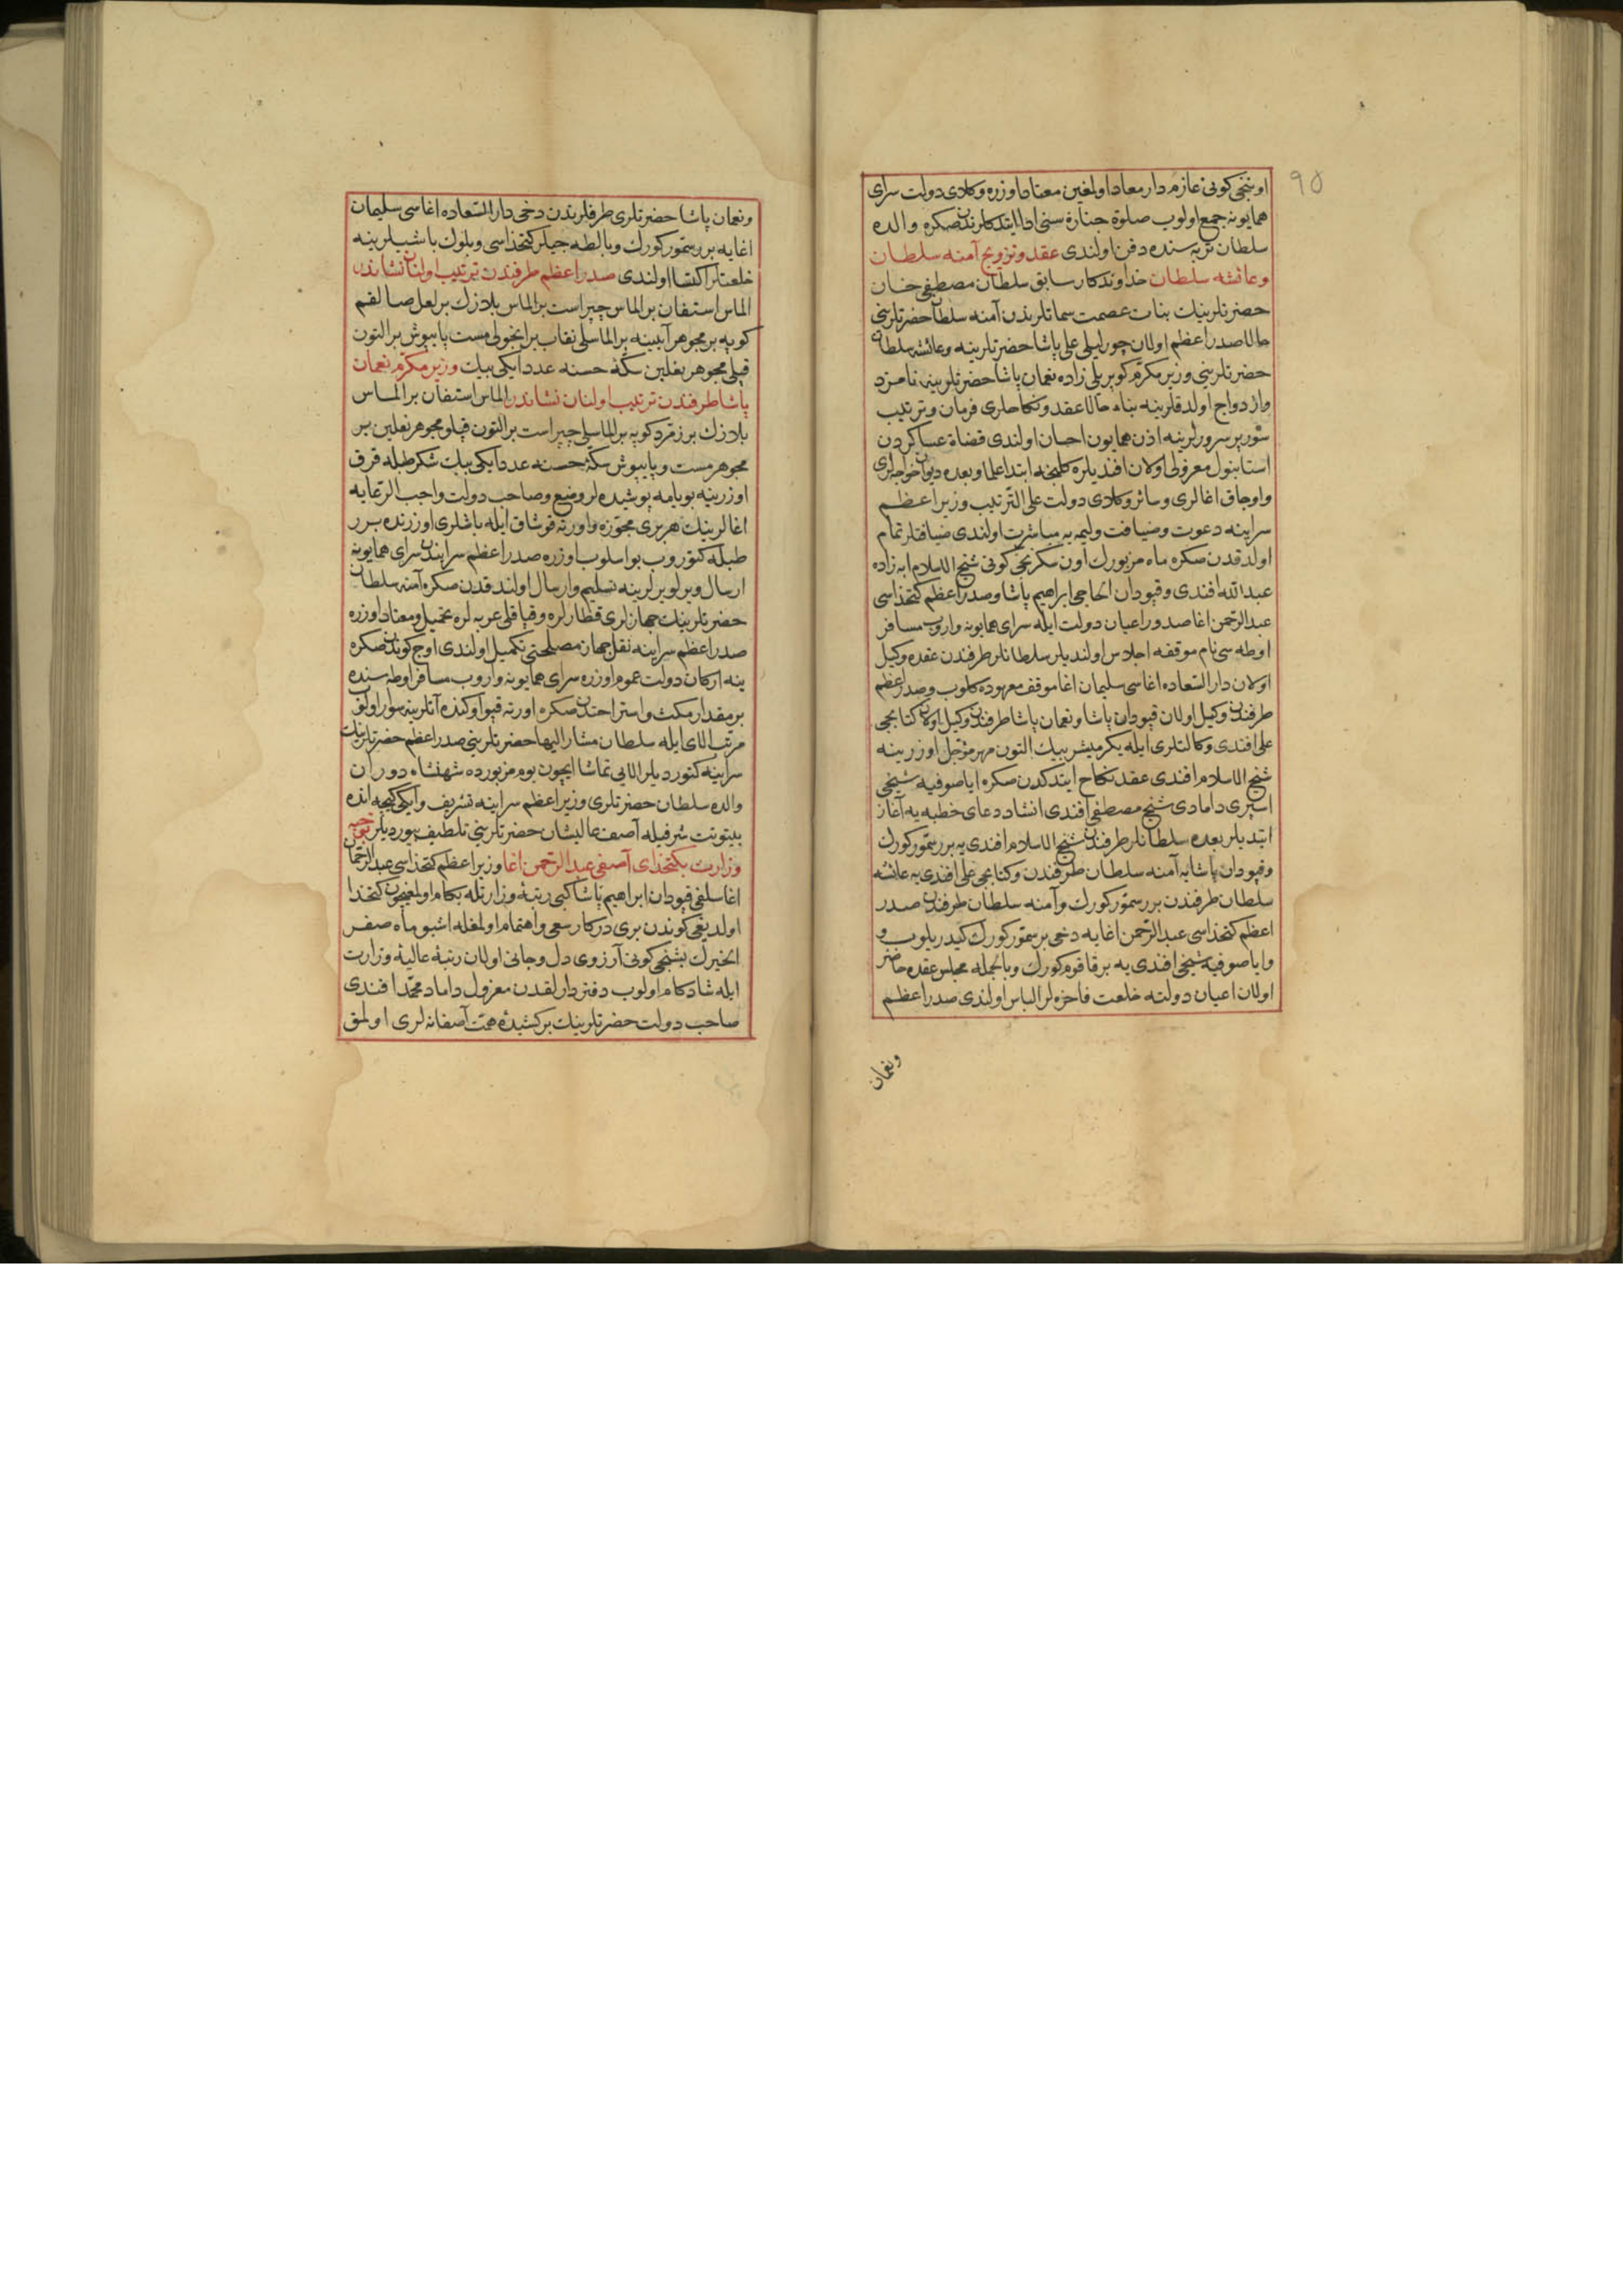 ٩٥
اوننجی کونی عازم دار معاد اولغین معتاد اوزره وکلای دولت سرای
همایونه جمع اولوب صلوة جنازه سنی ادا ایتدکلرندن صکره والده
سلطان تربه سنده دفن اولندی عقد وتزویج آمنه سلطان
وعائشه سلطان خداوندکار سابق سلطان مصطفی خان
حضرتلرینك بنات عصمت سماتلرندن آمنه سلطان حضرتلرینی
حالا صدر اعظم اولان چورلیلی علی پاشا حضرتلرینه وعائشه سلطان
حضرتلرینی وزیر مکرم کوپریلی زاده نعمان پاشا حضرتلرینه نامزد
وازدواج اولدقلرینه بناء حالا عقد ونکاحلری فرمان وترتیب
سور پر سرورلرینه اذن همایون احسان اولندی قضاة عساکردن
استانبول معزولی اولان افندیلره کلنجه ابتدا علما وبعده دیوان خواجه لری
واوجاق اغالری وسائر وکلای دولت علی الترتیب وزیر اعظم
سراینه دعوت وضیافت ولیمه یه مباشرت اولندی ضیافتلر تمام
اولدقدن صکره ماه مزبورك اون سکزنجی کونی شیخ الاسلام ابه زاده
عبدالله افندی وقپودان الحاجی ابراهیم پاشا وصدر اعظم کتخداسی
عبدالرحمن اغا صدور اعیان دولت ایله سرای همایونه واروب مسافر
اوطه سی نام موقفه اجلاس اولندیلر سلطانلر طرفندن عقده وکیل
اولان دار السعاده اغاسی سلیمان اغا موقف معهوده کلوب وصدر اعظم
طرفندن وکیل اولان قپودان پاشا ونعمان پاشا طرفندن وکیل اولان کتابجی
علی افندی وکالتلری ایله یکرمیشر بیك التون مهر مؤجل اوزرینه
شیخ الاسلام افندی عقد نکاح ایتدکدن صکره ایاصوفیه شیخی
اسپری دامادی شیخ مصطفی افندی انشاد دعای خطبه یه آغاز
ایتدیلر بعده سلطانلر طرفندن شیخ الاسلام افندی یه برر سمور کورك
وقپودان پاشایه آمنه سلطان طرفندن وکتابجی علی افندی یه عائشه
سلطان طرفندن برر سمور کورك وآمنه سلطان طرفندن صدر
اعظم کتخداسی عبدالرحمن اغایه دخی بر سمور کورك کیدریلوب و
وایاصوفیه شیخی افندی یه بر قاقوم کورك وبالجمله مجلس عقده حاضر
اولان اعیان دولته خلعت فاخره لر الباس اولندی صدر اعظم
ونعمان
ونعمان پاشا حضرتلری طرفلرندن دخی دار السعاده اغاسی سلیمان
اغایه برر سمور کورك وبالطه جیلر کتخداسی وبلوك باشیلرینه
خلعتلر اکتسا اولندی صدر اعظم طرفندن ترتیب اولنان نشاندر
الماس استفان بر الماس چپراست بر الماس بلازك بر لعل صالقم
کوپه بر مجوهر آیینه بر الماسلی نقاب بر اینجولی مست پاپوش بر التون
قپلی مجوهر نعلین سکۀ حسنه عدد ایکی بیك وزیر مکرم نعمان
پاشا طرفندن ترتیب اولنان نشاندر الماس استفان بر الماس
بلازك بر زمرد کوپه بر الماسلی چپراست بر التون قپلو مجوهر نعلین بر
مجوهر مست وپاپوش سکۀ حسنه عدد ایکی بیك شکر طبله قرق
اوزرینه بویامه پوشیده لر وضع وصاحب دولت واجب الرعایه
اغالرینك هر بری مجوزه واورته قوشاق ایله باشلری اوزرنده برر
طبله کتوروب بو اسلوب اوزره صدر اعظم سرایندن سرای همایونه
ارسال ویرلو یرلرینه تسلیم وارسال اولندقدن صکره آمنه سلطان
حضرتلرینك جهازلری قطارلره وقپاقلی عربه لره تحمیل ومعتاد اوزره
صدر اعظم سراینه نقل جهاز مصلحتی تکمیل اولندی اوج کوندن صکره
ینه ارکان دولت عموم اوزره سرای همایونه واروب مسافر اوطه سنده
بر مقدار مکث واستراحتدن صکره اورته قپو اوکنده آتلرینه سوار اولوب
مرتب الای ایله سلطان مشار الیها حضرتلرینی صدر اعظم حضرتلرینك
سراینه کتوردیلر الایی تماشا ایچون یوم مزبورده شهنشاه دوران
والده سلطان حضرتلری وزیر اعظم سراینه تشریف وایکی کیجه انده
بیتوتت شرفیله آصف عالیشان حضرتلرینی تلطیف بیوردیلر توجیه
وزارت بکتخدای آصفی عبدالرحمن اغا وزیر اعظم کتخداسی عبدالرحمن
اغا سلفی قپودان ابراهیم پاشا کبی رتبۀ وزارتله بکام اولمغیچون کتخدا
اولدیغی کوندن بری درکار سعی واهتمام اولمغله اشبو ماه صفر
الخیرك بشنجی کونی آرزوی دل وجانی اولان رتبۀ عالیۀ وزارت
ایله شادکام اولوب دفتردارلقدن معزول داماد محمد افندی
صاحب دولت حضرتلرینك برکشیدۀ همت آصفانه لری اولمق